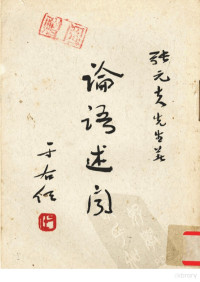 張元夫先生著
論語述聞
于右任